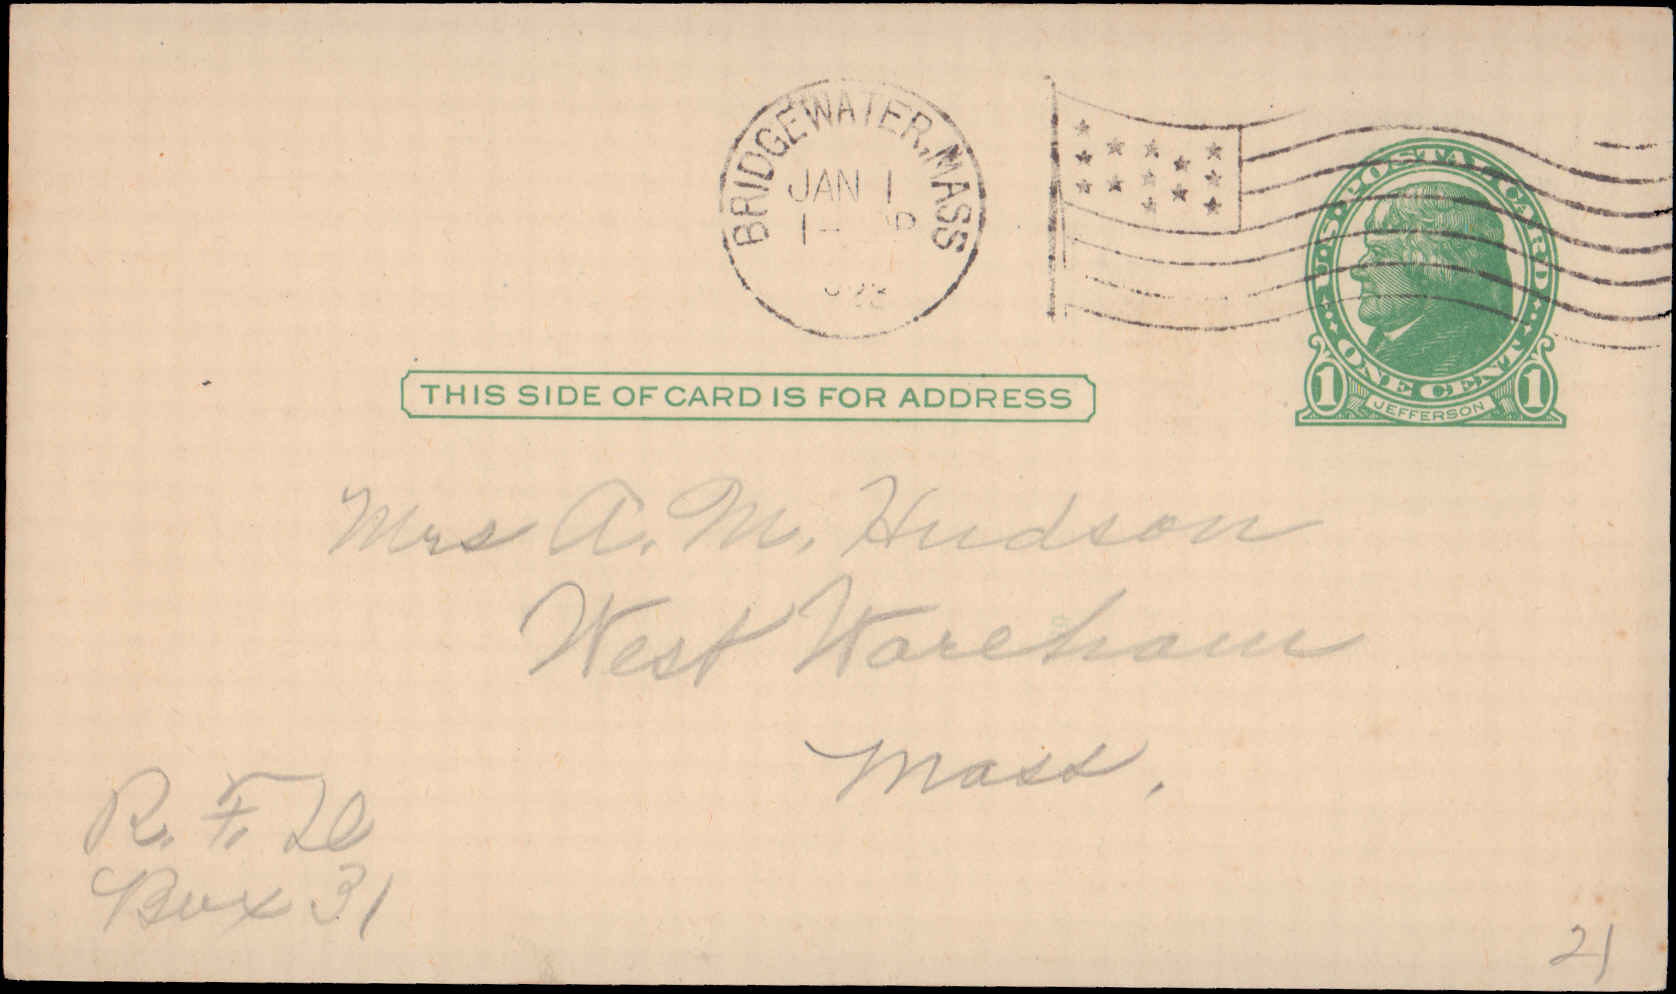 BRIDGEWATER, MASS
JAN 1
U.S. POSTAL CARD
ONE CENT
1 JEFFERSON 1
THIS SIDE OF CARD IS FOR ADDRESS
Mrs A. M. Hudson
West Wareham
Mass.
R. F. D
Box 31
21